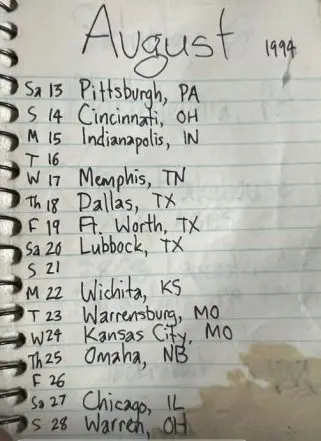 August 1994
Sa 13 Pittsburgh, PA
S 14 Cincinnati, OH
M 15 Indianapolis, IN
T 16
W 17 Memphis, TN
Th 18 Dallas, TX
F 19 Ft. Worth, TX
Sa 20 Lubbock, TX
S 21
M 22 Wichita, KS
T 23 Warrensburg, MO
W 24 Kansas City, MO
Th 25 Omaha, NB
F 26
Sa 27 Chicago, IL
S 28 Warren, OH